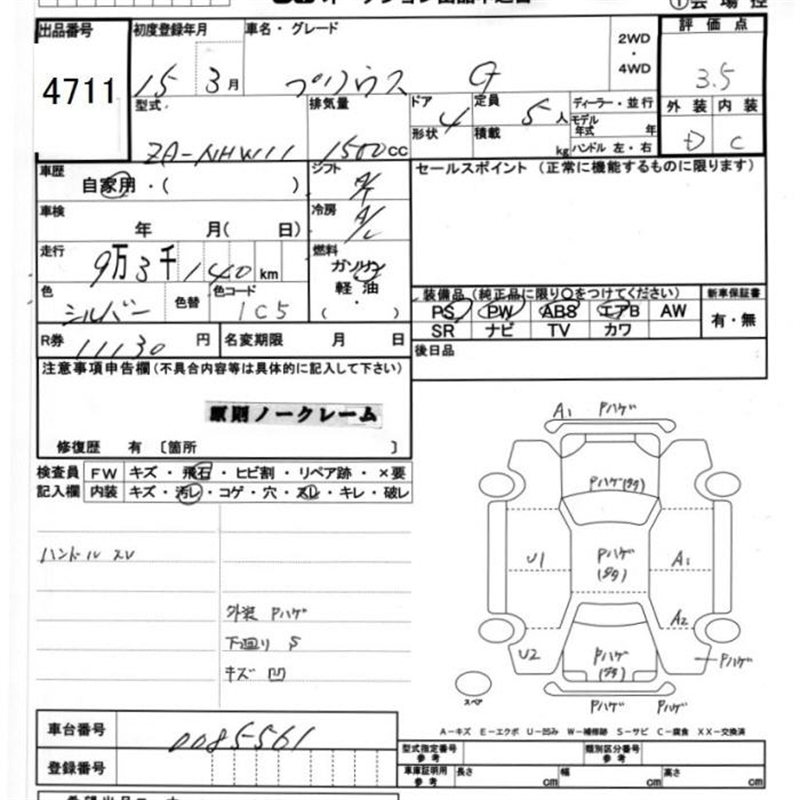 ①会場控
出品番号 初度登録年月 車名・グレード 2WD・4WD 評価点
4711 15 3月 プリウス G 3.5
型式 排気量 ドア 4 定員 5人 ディーラー・並行 外装 内装
ZA-NHW11 1500cc 形状 積載 kg モデル年式 年 ハンドル 左・右 D C
車歴 シフト A/T セールスポイント(正常に機能するものに限ります)
自家用・( )
車検 年 月( 日) 冷房 A/C
走行 9万3千140km 燃料 ガソリン
色 シルバー 色替 色コード 1C5 軽油 ( )
装備品(純正品に限り○をつけてください) 新車保証書
PS PW ABS エアB AW 有・無
SR ナビ TV カワ
R券 11130円 名変期限 月 日 後日品
注意事項申告欄(不具合内容等は具体的に記入して下さい)
原則ノークレーム
修復歴 有 〔箇所 〕
検査員 FW キズ・飛石・ヒビ割・リペア跡・×要
記入欄 内装 キズ・汚レ・コゲ・穴・スレ・キレ・破レ
ハンドルスレ
外装 Pハゲ
下廻り S
キズ 凹
A1 Pハゲ
Pハゲ(タタ)
U1 Pハゲ(タタ) A1
A2
U2 Pハゲ(タタ) Pハゲ
スペア Pハゲ Pハゲ
A-キズ E-エクボ U-凹み W-補修跡 S-サビ C-腐食 XX-交換済
車台番号 0085561
型式指定番号参考 類別区分番号参考
登録番号
車庫証明用参考 長さ cm 幅 cm 高さ cm